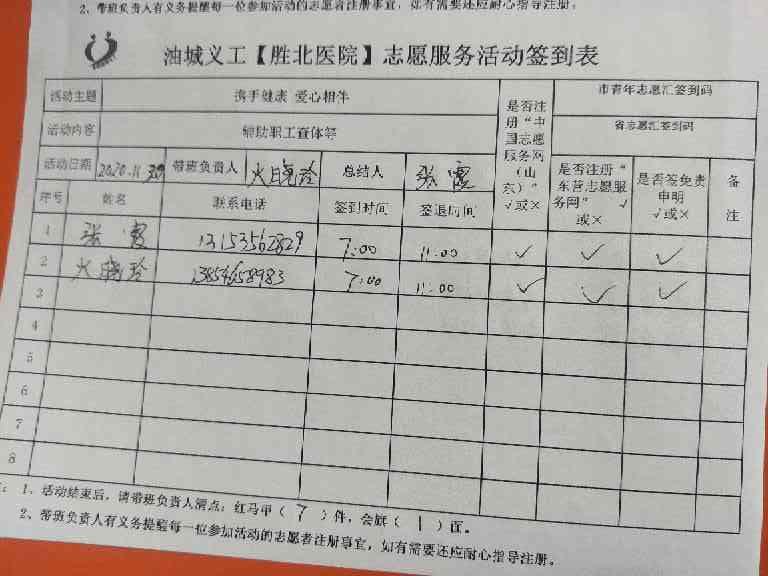 2、带班负责人有义务提醒每一位参加活动的志愿者注册事宜，如有需要还应耐心指导注册。
油城义工【胜北医院】志愿服务活动签到表
活动主题 携手健康 爱心相伴 是否注册“中国志愿服务网（山东）”√或× 市青年志愿汇签到码
活动内容 辅助职工查体等 省志愿汇签到码
活动日期 2020.11 带班负责人 火晓玲 总结人 张霞 是否注册“东营志愿服务网” √或× 是否签免责申明 √或× 备注
序号 姓名 联系电话 签到时间 签退时间
1 张霞 13153562829 7:00 11:00 ✓ ✓ ✓
2 火晓玲 13854658983 7:00 11:00 ✓ ✓ ✓
3
4
5
6
7
8
1、活动结束后，请带班负责人清点：红马甲（7）件，会旗（1）面。
2、带班负责人有义务提醒每一位参加活动的志愿者注册事宜，如有需要还应耐心指导注册。